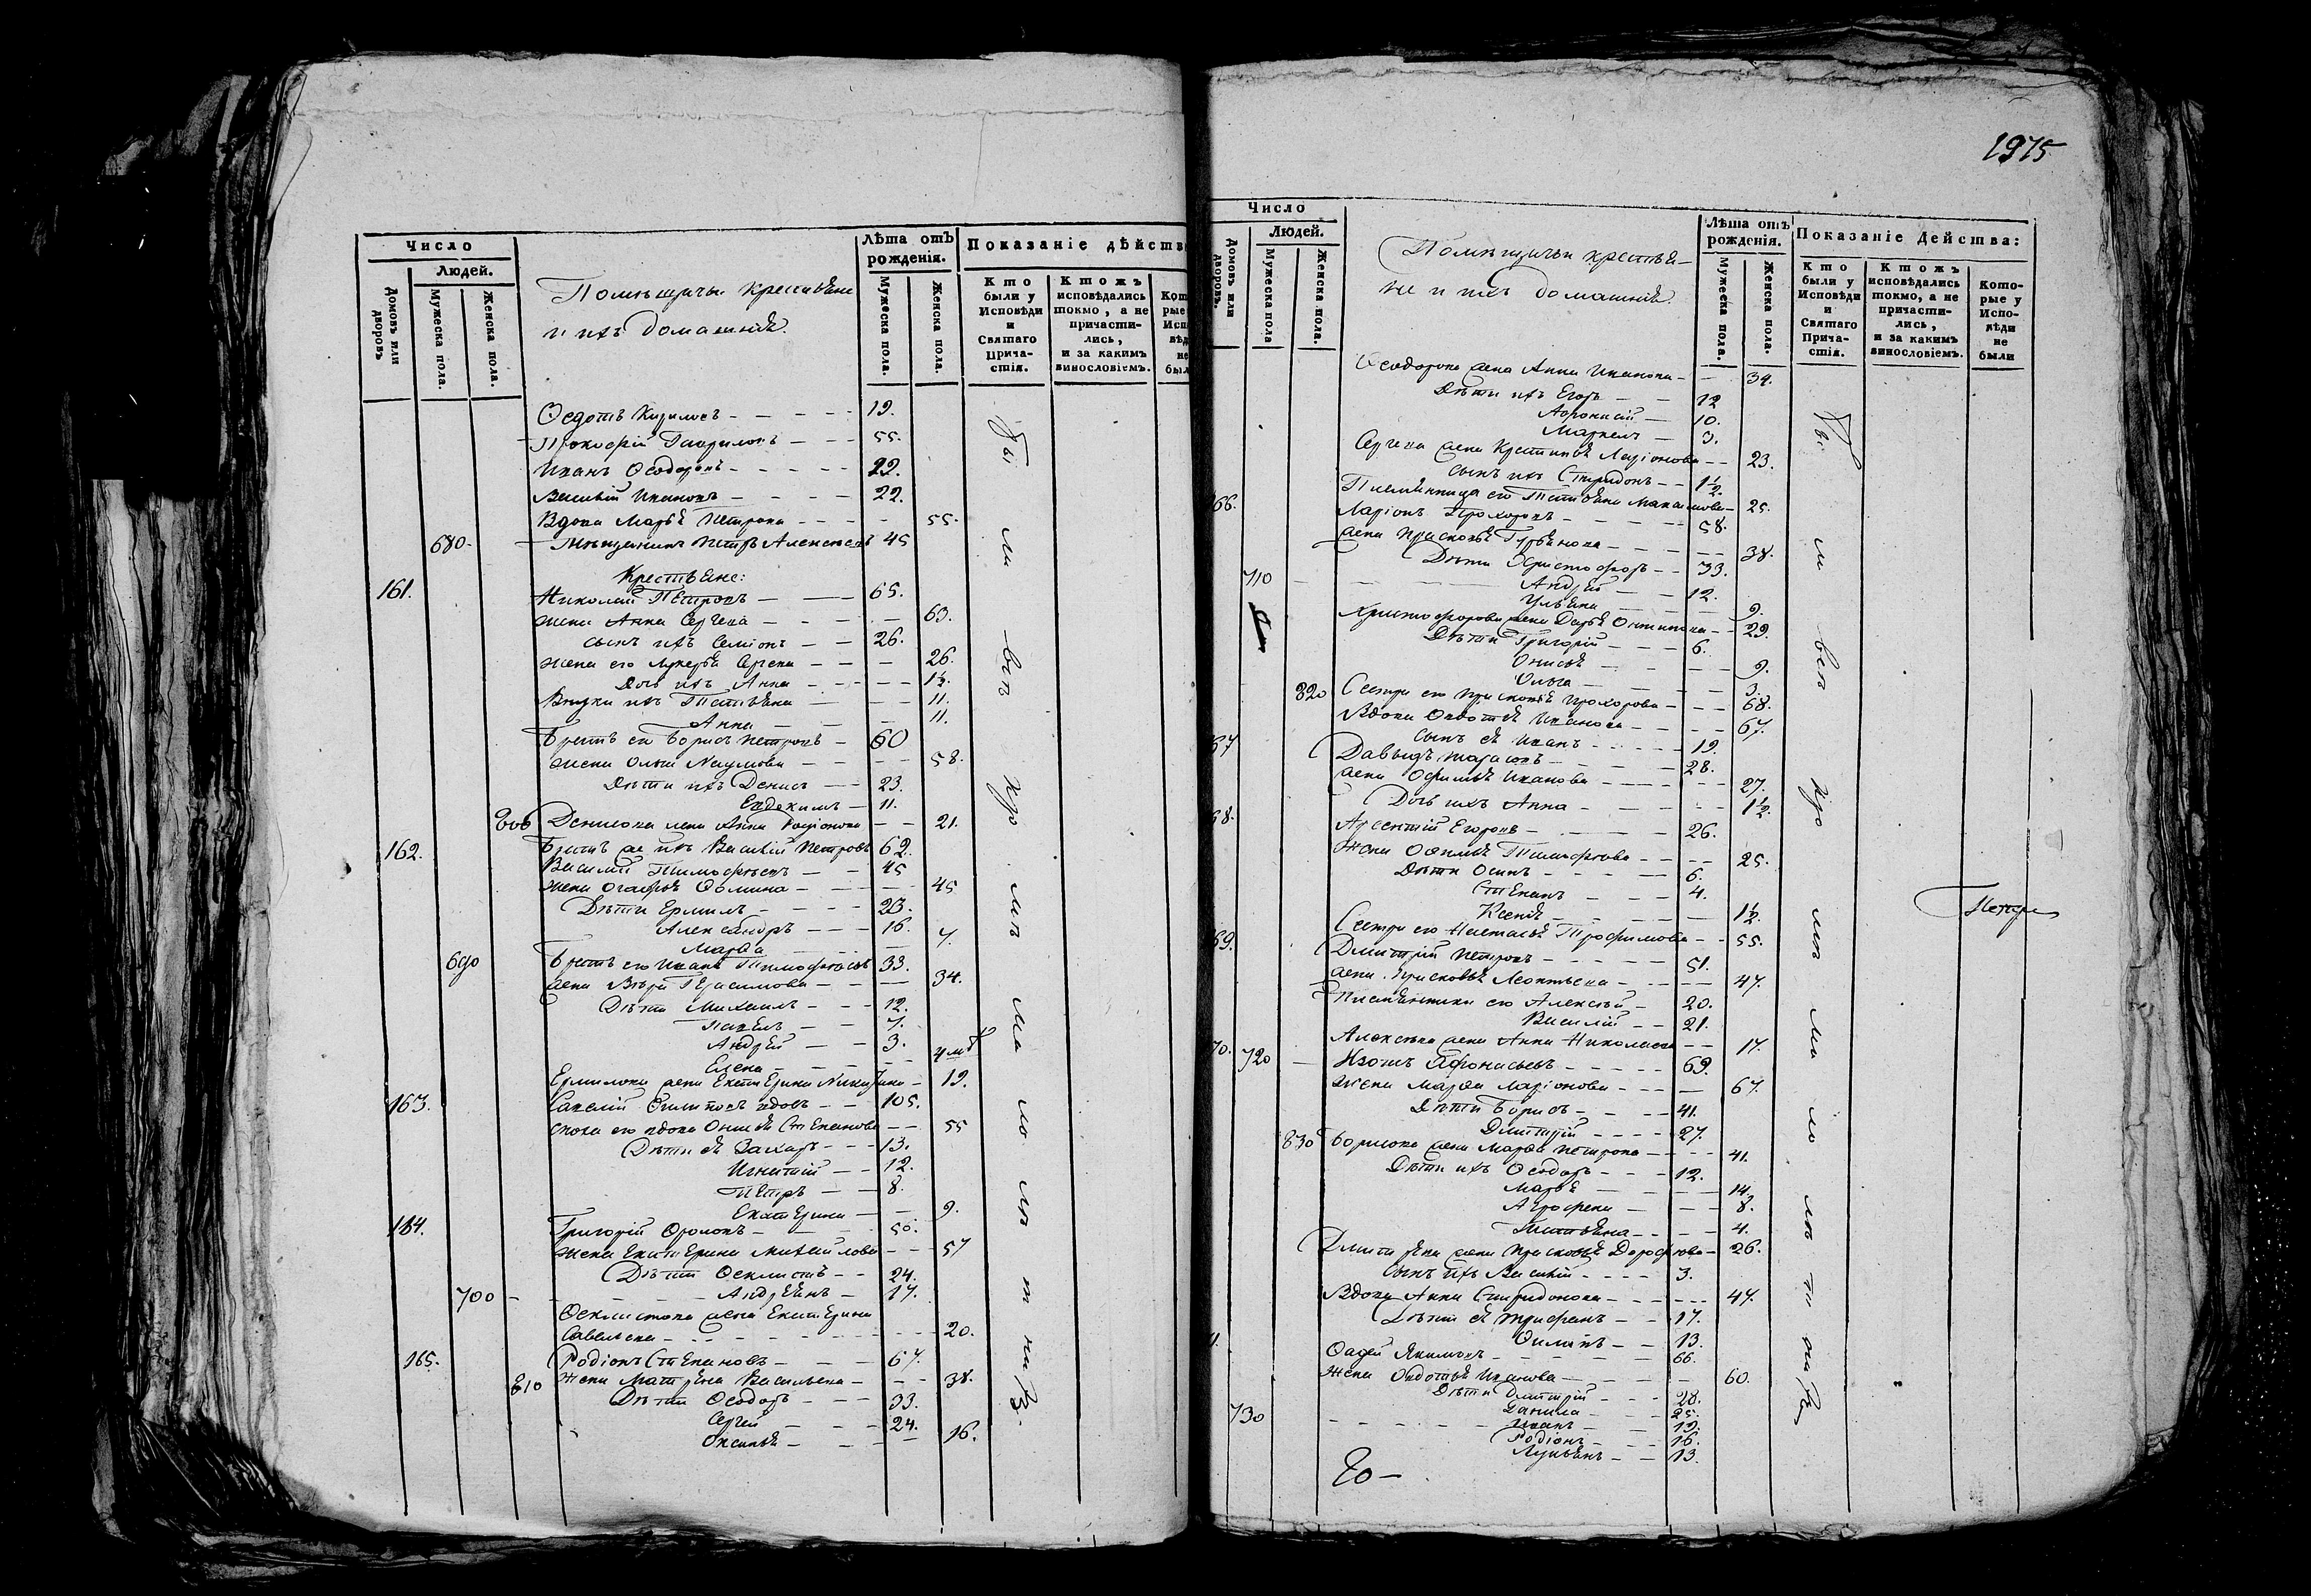 Число
Людей.
Домовъ или дворовъ
Мужеска пола.
Женска пола.
Помѣщичьи крестьяне
и ихъ домашніе.
Лѣта отъ рожденія.
Мужеска пола.
Женска пола.
Показаніе дѣйств
Кто были у Исповѣди и Святаго Прича-стія.
Ктожъ исповѣдались токмо, а не причасти-лись, и за какимъ винословіемъ.
Ѳедотъ Кириловъ - - - - 19.
Прокофій Гавриловъ - - - 55.
Иванъ Ѳедоровъ - - - - 22.
Василій Ивановъ - - - - 22.
Вдова Марья Петрова - - - - 55.
680. Мѣщанинъ Петръ Алексѣевъ 45
Крестьяне:
161. Николай Петровъ - - 65.
жена Анна Сергеева - - - - 63.
сынъ ихъ Семіонъ - - 26.
жена его Лукерья Сергеева - - - 26.
Дочь ихъ Анна - - - - 1½.
Внуки ихъ Татьяна - - - 11.
Анна - - - 11.
Братъ его Борисъ Петровъ - 60
жена Ольга Наумова - - - - 58.
Дѣти ихъ Денисъ - - 23.
Евдокимъ - 11.
Денисова жена Анна Родіонова - - 21.
162. Братъ же ихъ Василій Петровъ 62.
Василій Тимофѣевъ - - 45
жена Агафья Ѳомина - - - 45
Дѣти Ермилъ - - - - 23.
Александръ - - - 16.
Марѳа - - - 7.
690 Братъ его Иванъ Тимофѣевъ 33.
жена Вѣра Герасимова - - - 34.
Дѣти Михаилъ - - - 12.
Павелъ - - 7.
Андрей - - 3.
Елена - - - 4 м
Ермилова жена Екатерина Никифорова - 19.
163. Савелій Филиповъ вдовъ - - 105.
сноха его вдова Онисья Степанова - - 55
Дѣти ея Захаръ - - - 13.
Игнатій - - 12.
Петръ - - 8.
Екатерина - - 9.
164. Григорій Фроловъ - - - 50.
жена Екатерина Михайлова - - - 57
Дѣти Ѳеклистъ - - 24.
700 - - - Андреянъ - 17.
Ѳеклистова жена Екатерина
Савельева - - - - - - - 20.
165. Родіонъ Степановъ - - - 67.
810 жена Матрена Васильева - - - 38.
Дѣти Ѳедоръ - - - 33.
Сергей - - - 24.
Оксинья - - - - 16.
Бы
ли
во
при
1975
Число
Людей.
Домовъ или дворовъ.
Мужеска пола
Женска пола.
Помѣщичьи крестья-
не и ихъ домашніе.
Лѣта отъ рожденія.
Мужеска пола.
Женска пола.
Показаніе Действа:
Кто были у Исповѣди и Святаго Прича-стія.
Ктожъ исповѣдались токмо, а не причасти-лись, и за какимъ винословіемъ.
Кото-рые у Испо-вѣди не были
Ѳедорова жена Анна Иванова - - 34.
Дѣти ихъ Егоръ - - 12
Афонасій - 10.
Маркелъ - 3.
Сергеева жена Крестинья Ларіонова - - 23.
сынъ ихъ Спиридонъ - - 1½.
Племянница его Татьяна Максимова - 25.
66. Ларіонъ Прохоровъ - - - - 58.
жена Прасковья Гурьянова - - - - 38.
Дѣти Христофоръ - - 33.
710 - - - Андрей - - 12.
Ульяна - - - 9.
Христофорова жена Дарья Онтипова - - 29.
Дѣти Григорій - - - 6.
Онисья - - - 9.
Ольга - - - 3.
820 Сестра его Прасковья Прохорова - - - 68.
Вдова Овдотья Иванова - - - - 67.
сынъ ея Иванъ - - - - 19.
67 Давыдъ Тарасовъ - - - - 28.
жена Офимья Иванова - - - - - 27.
Дочь ихъ Анна - - - - 1½.
68. Арсентій Егоровъ - - - - 26.
Жена Офимья Тимофѣева - - - - 25.
Дѣти Осипъ - - - - 6.
Степанъ - - - 4.
Ксенья - - - - 1½.
Сестра его Наталья Трофимова - - 55.
69. Дмитрій Петровъ - - - - 51.
жена Прасковья Леонтьева - - - - 47.
Племянники его Алексѣй - 20.
Василій - - 21.
Алексѣева жена Анна Николаева - - 17.
70. 720 - Изотъ Афонасьевъ - - - - 69.
жена Марѳа Ларіонова - - - - 67.
Дѣти Борисъ - - - 41.
Дмитрій - - - - 27.
830 Борисова жена Марѳа Петрова - - - 41.
Дѣти ихъ Ѳедоръ - - - 12.
Марья - - - 14.
Аграфена - - - 8.
Татьяна - - - - 4.
Дмитріева жена Прасковья Дорофѣева - 26.
Сынъ ихъ Василій - - - - 3.
Вдова Анна Спиридонова - - - - 47.
Дѣти ея Трифанъ - - 17.
Филипъ - - 13.
Фадей Якимовъ - - - - 66.
жена Овдотья Иванова - - - - 60.
Дѣти Дмитрій - - - 28.
Данила - - - 25.
730 - - - - Иванъ - - - 19.
Родіонъ - - 16.
Лукьянъ - - 13.